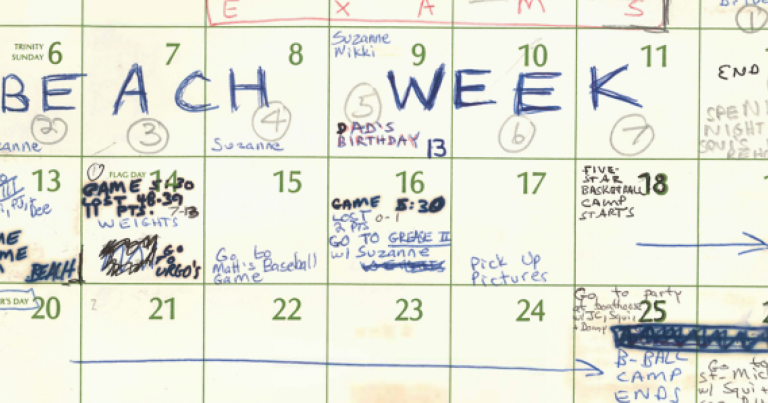 E X A M S
TRINITY
SUNDAY 6
7
8
Suzanne
Nikki
9
10
11
END
BEACH WEEK
2
3
4
5
6
7
1
SPEN
NIGHT
Suzanne
DAD'S
BIRTHDAY 13
13
FLAG DAY 14
GAME 5:30
LOST 48-39
11 PTS. 7-13
WEIGHTS
GO
TO
URGO'S
BEACH
15
Go to
Matt's Baseball
Game
16
GAME 5:30
LOST 0-1
2 PTS
GO TO GREASE II
w/ Suzanne
17
Pick Up
Pictures
FIVE-
STAR 18
BASKETBALL
CAMP
STARTS
20
21
22
23
24
Go to party
at boathouse
w/ JC, Squi
25
B-BALL
CAMP
ENDS
Go to
St-Mic
w/ Squi +